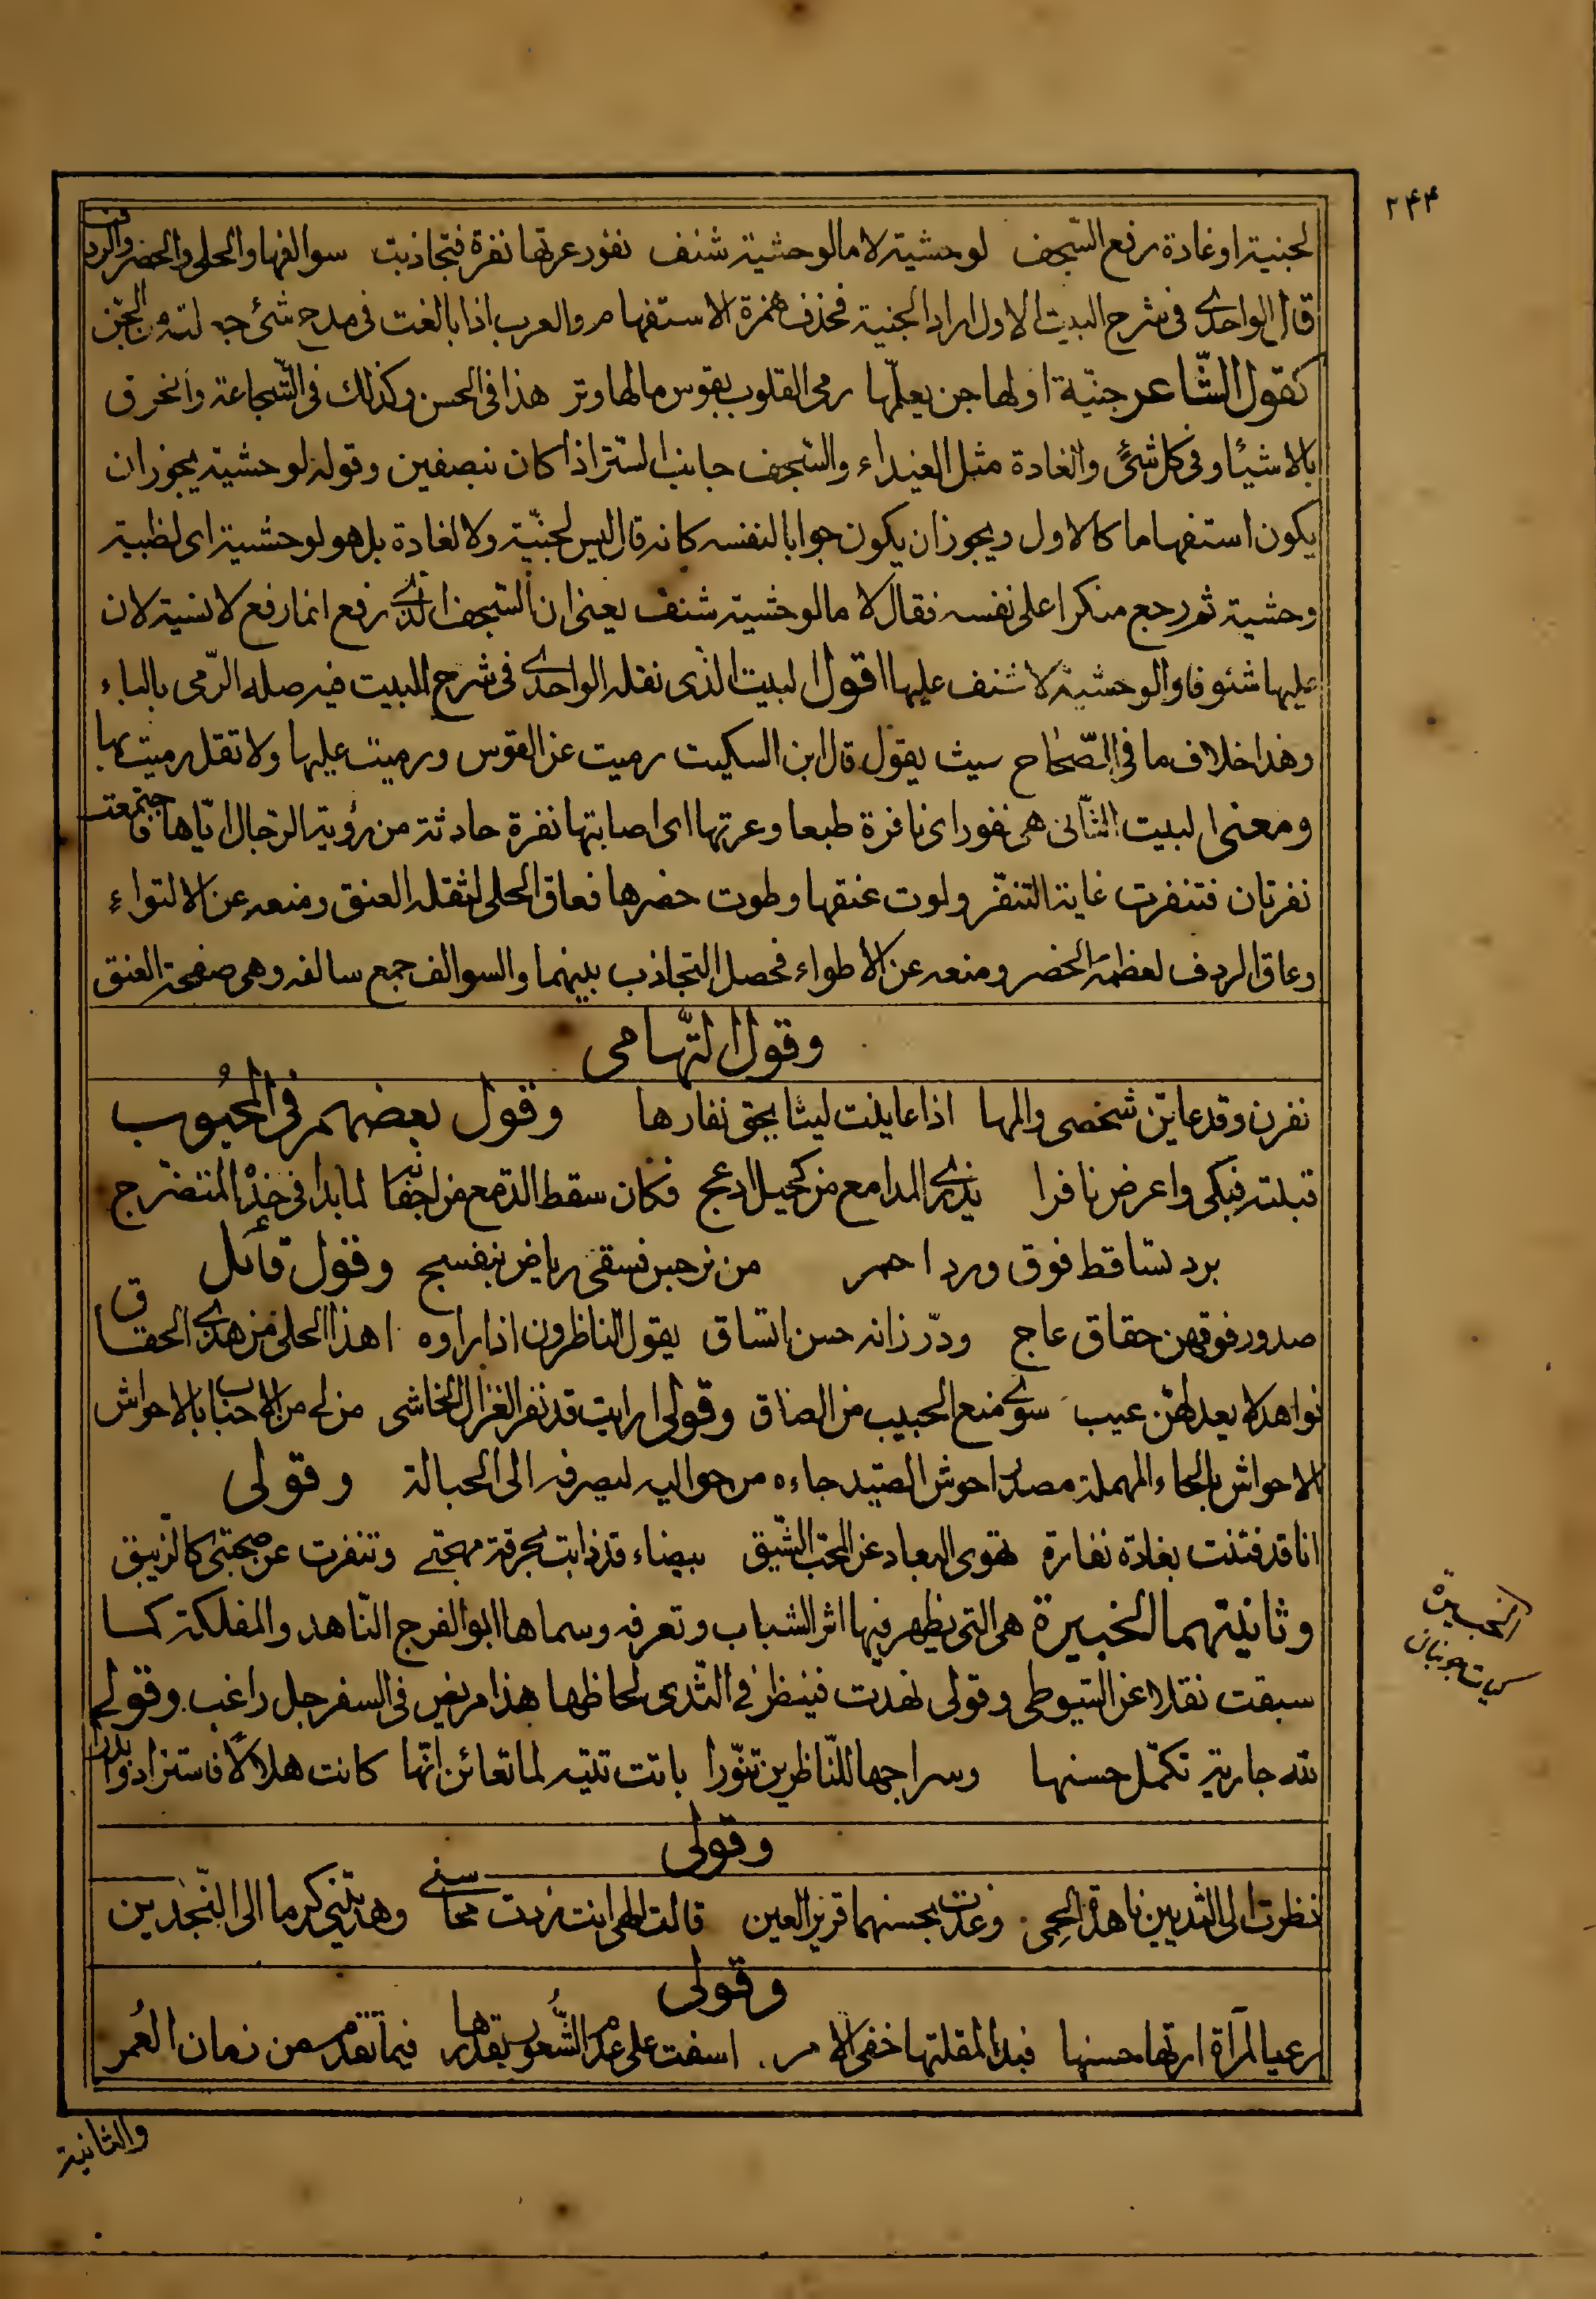 ۲۴۴
لجنية او غادة رفع السّجف لوحشية لا ما لوحشية شنف نفور عرتها نفرة فتجاذبت سوالفها والحلي والخصر والردف
قال الواحدي في شرح البيت الاول اراد الجنية فحذف همزة الاستفهام والعرب اذا بالغت في مدح شئ جعلته من الجن
كقول الشّاعر جنّية اولها جن يعلّمها رمي القلوب بقوس ما لها وتر هذا في الحسن وكذلك في الشّجاعة والخرق
بالاشيا وفي كل شئ والغادة مثل الغيداء والسّجف جانب الستر اذا كان بنصفين وقوله لوحشية يجوز ان
يكون استفهاما كالاول ويجوز ان يكون جوابا لنفسه كانه قال ليس لجنّية ولا لغادة بل هو لوحشية اي لظبية
وحشية ثم رجع منكرا على نفسه فقال لا ما لوحشية شنف يعني ان السّجف الذي رفع انما رفع لانسية لان
عليها شنوفا والوحشية لا شنف عليها اقول البيت الذي نقله الواحدي في شرح البيت فيه صلة الرّمي بالباء
وهذا خلاف ما في الصّحاح حيث يقول قال ابن السكيت رميت عن القوس ورميت عليها ولا تقل رميت بها
ومعنى البيت الثّاني هي نفور اي نافرة طبعا وعرتها اي اصابتها نفرة حادثة من رؤية الرّجال ايّاها فاجتمعت
نفرتان فتنفرت غاية التنفّر ولوت عنقها وطوت خصرها فعاق الحلي لثقله العنق ومنعه عن الالتواء
وعاق الردف لعظمة الخصر ومنعه عن الاطواء فحصل التجاذب بينهما والسوالف جمع سالفه وهي صفحة العنق
وقول التّهامي
نفرن وقد عاينّ شخصي والمها اذا عاينت ليثا يحق نفارها وقول بعضهم في المحبُوب
قبلته فبكى واعرض نافرا يذري المدامع من كحيل ادعج فكان سقط الدّمع من اجفانه لما بدا في خدّه المتضرج
برد تساقط فوق ورد احمر من نرجس فسقى رياض بنفسج وقول قائل
صدور فوقهن حقاق عاج ودرّ زانه حسن اتساق يقول الناظرون اذا راوه اهذا الحلي من هذي الحقاق
نواهد لا يعد لهنّ عيب سوى منع الحبيب من العناق وقولي ارايت قد نفر الغزال الخاشى من لي من الاحباب بالاحواش
الاحواش بالحاء المهملة مصدر احوش الصّيد جاءه من حواليه ليصرفه الى الحبالة وقولي
انا قد فتنت بغادة نفارة تهوى البعاد عن المحبّ الشّيق بيضاء قد ذابت بحرقة مهجتي وتنفرت عن صحبتي كالزيبق
وثانيتهما الخبيرة هي التي يظهر فيها اثر الشباب وتعرفه وسماها ابو الفرج النّاهد والمفلكة كما
سبقت نقلا عن السّيوطي وقولي نهدت فينظر في الثدي لحاظها هذا مريض في السفرجل راغب وقولي
لله جارية تكمّل حسنها وسراجها للنّاظرين تنّورا باتت تتيه لما تعائن انّها كانت هلالًا فاستزاد وابدرا
وقولي
نظرت الى الثديين ناهدة الحِمى وغدت بحسنهما قرير العين قالت الهى انت زدت محاسني وهديتني كرما الى النّجدين
وقولي
رعيا لمرآة ارتها حسنها فبدا لمقلتها خفي الامر اسفت على عدم الشّعور بقدرها فيما تقدّم من زمان العُمر
والثانية
الخبيرة